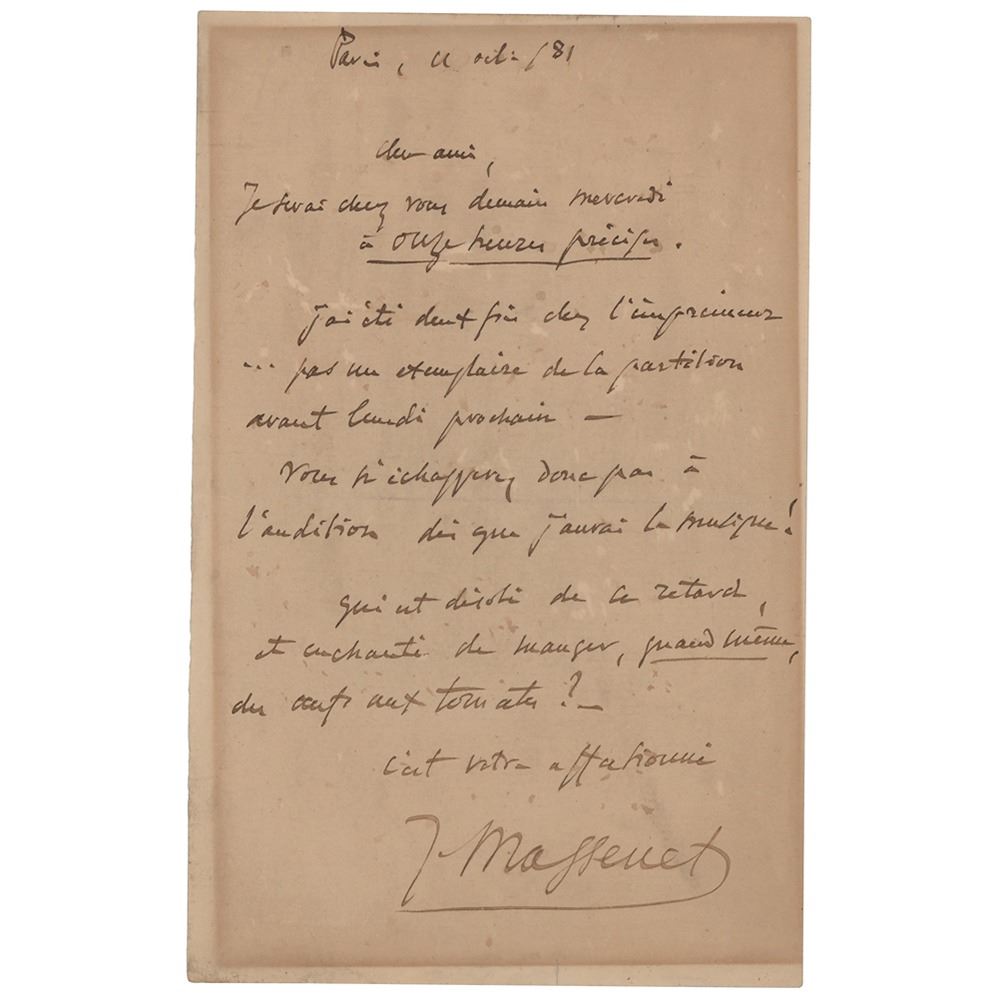 Paris, 11 oct. /81
cher ami,
Je serai chez vous demain mercredi
à onze heures précises.
j'ai été deux fois chez l'imprimeur
... pas un exemplaire de la partition
avant lundi prochain —
Vous n'échapperez donc pas à
l'audition dès que j'aurai la musique!
qui est désolé de ce retard,
et enchanté de manger, quand même,
des œufs aux tomates? —
c'est votre affectionné
J. Massenet